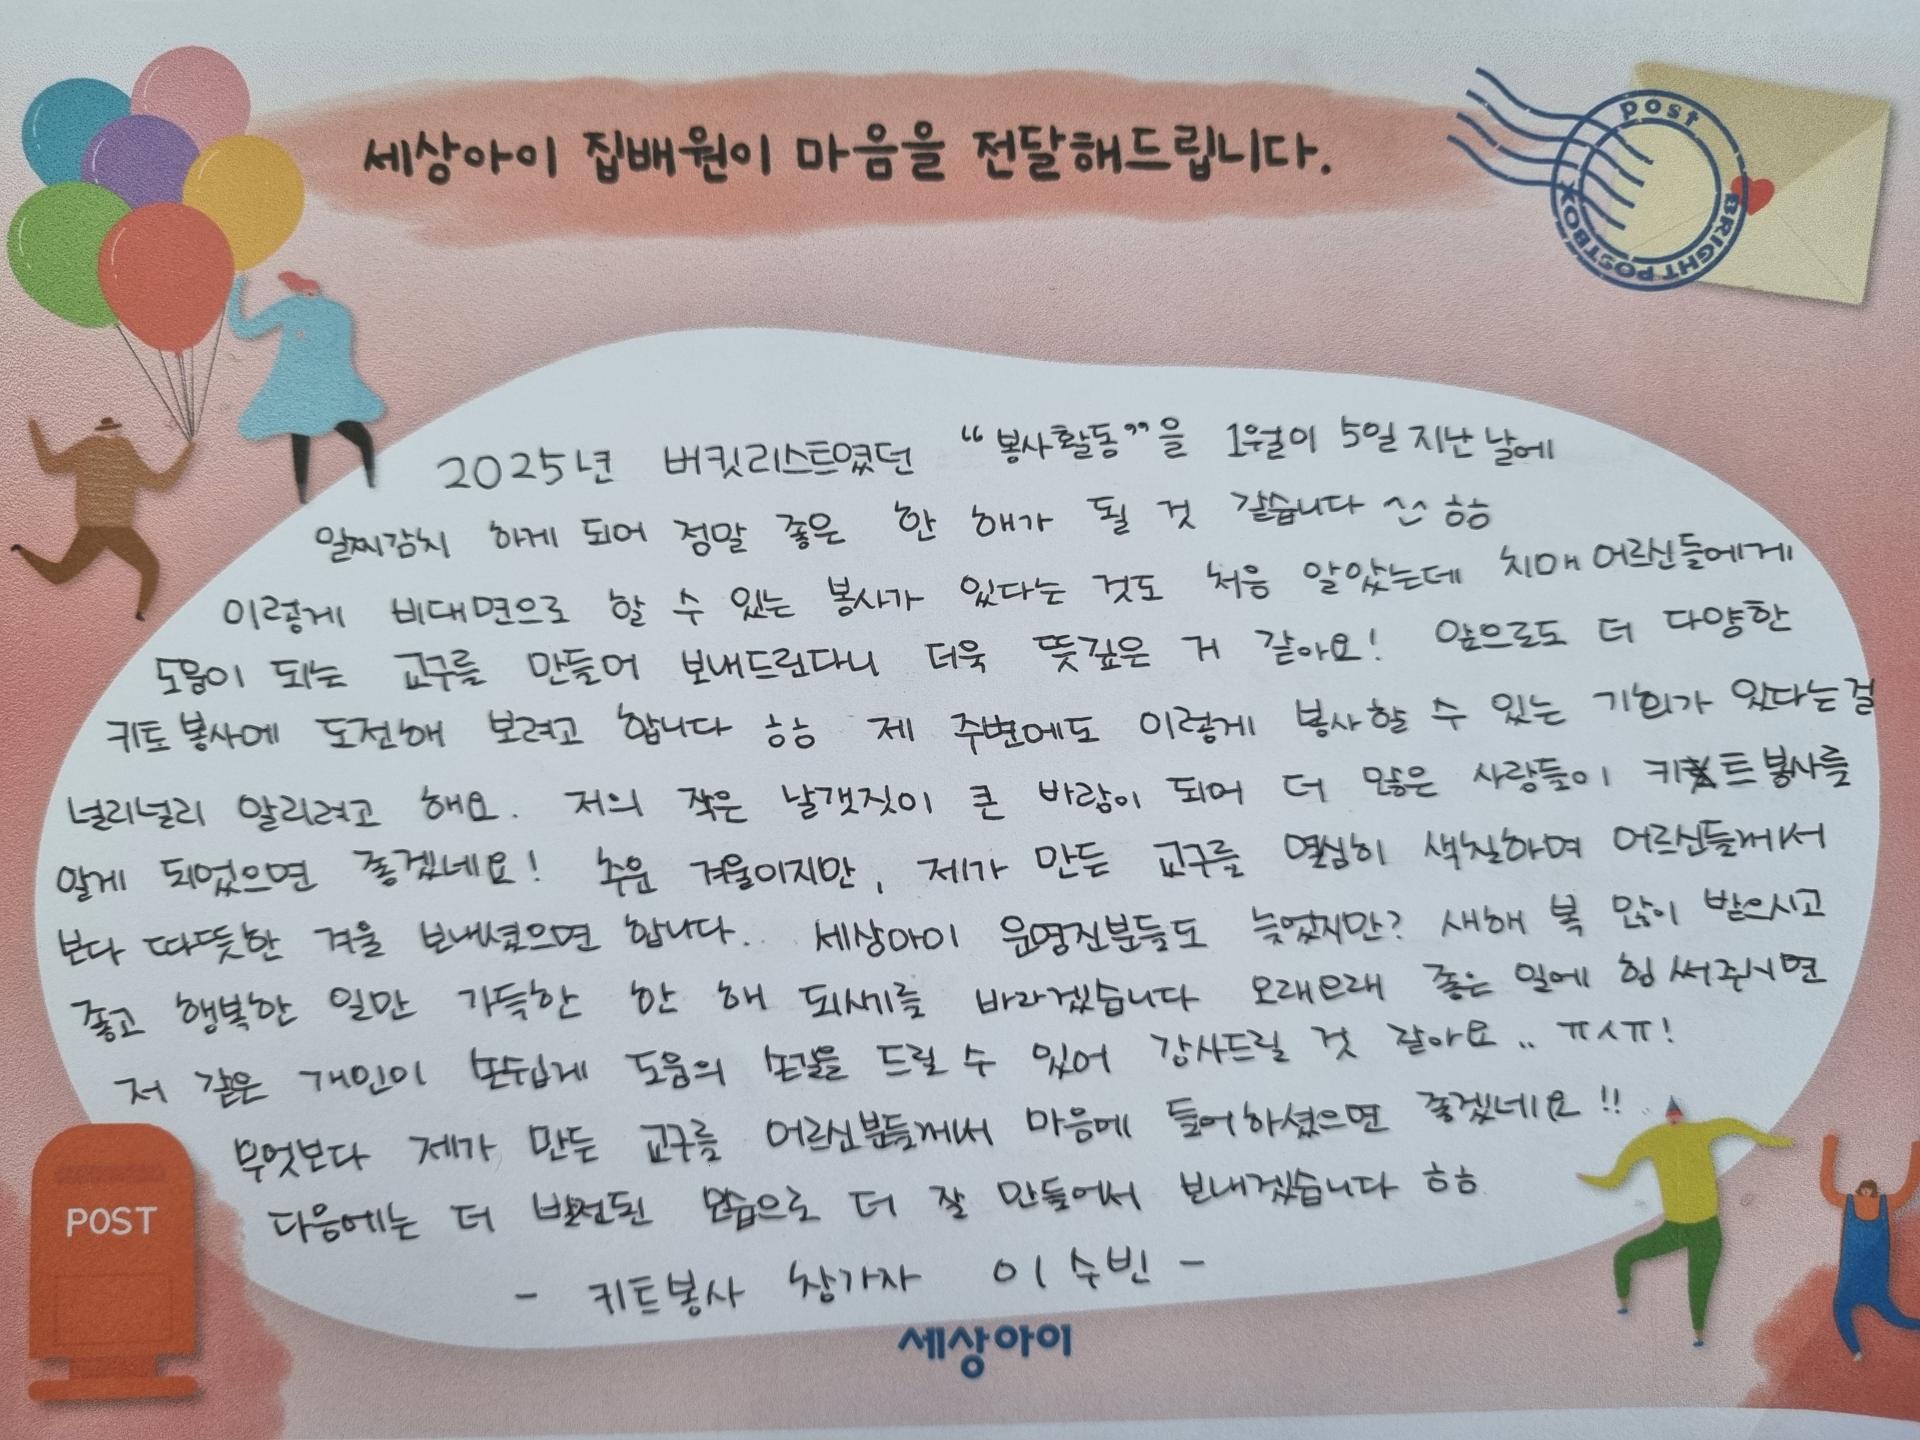 세상아이 집배원이 마음을 전달해드립니다.
post
BRIGHT POSTBOX
2025년 버킷리스트였던 “봉사활동”을 1월이 5일 지난 날에
일찌감치 하게 되어 정말 좋은 한 해가 될 것 같습니다 ^^ ㅎㅎ
이렇게 비대면으로 할 수 있는 봉사가 있다는 것도 처음 알았는데 치매 어르신들에게
도움이 되는 교구를 만들어 보내드린다니 더욱 뜻깊은 거 같아요! 앞으로도 더 다양한
키트 봉사에 도전해 보려고 합니다 ㅎㅎ 제 주변에도 이렇게 봉사할 수 있는 기회가 있다는걸
널리널리 알리려고 해요. 저의 작은 날갯짓이 큰 바람이 되어 더 많은 사람들이 키트 봉사를
알게 되었으면 좋겠네요! 추운 겨울이지만, 제가 만든 교구를 열심히 색칠하며 어르신들께서
보다 따뜻한 겨울 보내셨으면 합니다. 세상아이 운영진분들도 늦었지만? 새해 복 많이 받으시고
좋고 행복한 일만 가득한 한 해 되시기를 바라겠습니다 오래오래 좋은 일에 힘써주시면
저 같은 개인이 손쉽게 도움의 손길을 드릴 수 있어 감사드릴 것 같아요.. ㅠㅅㅠ!
무엇보다 제가 만든 교구를 어르신분들께서 마음에 들어하셨으면 좋겠네요!!
다음에는 더 발전된 모습으로 더 잘 만들어서 보내겠습니다 ㅎㅎ
- 키트봉사 참가자 이수빈 -
POST
세상아이